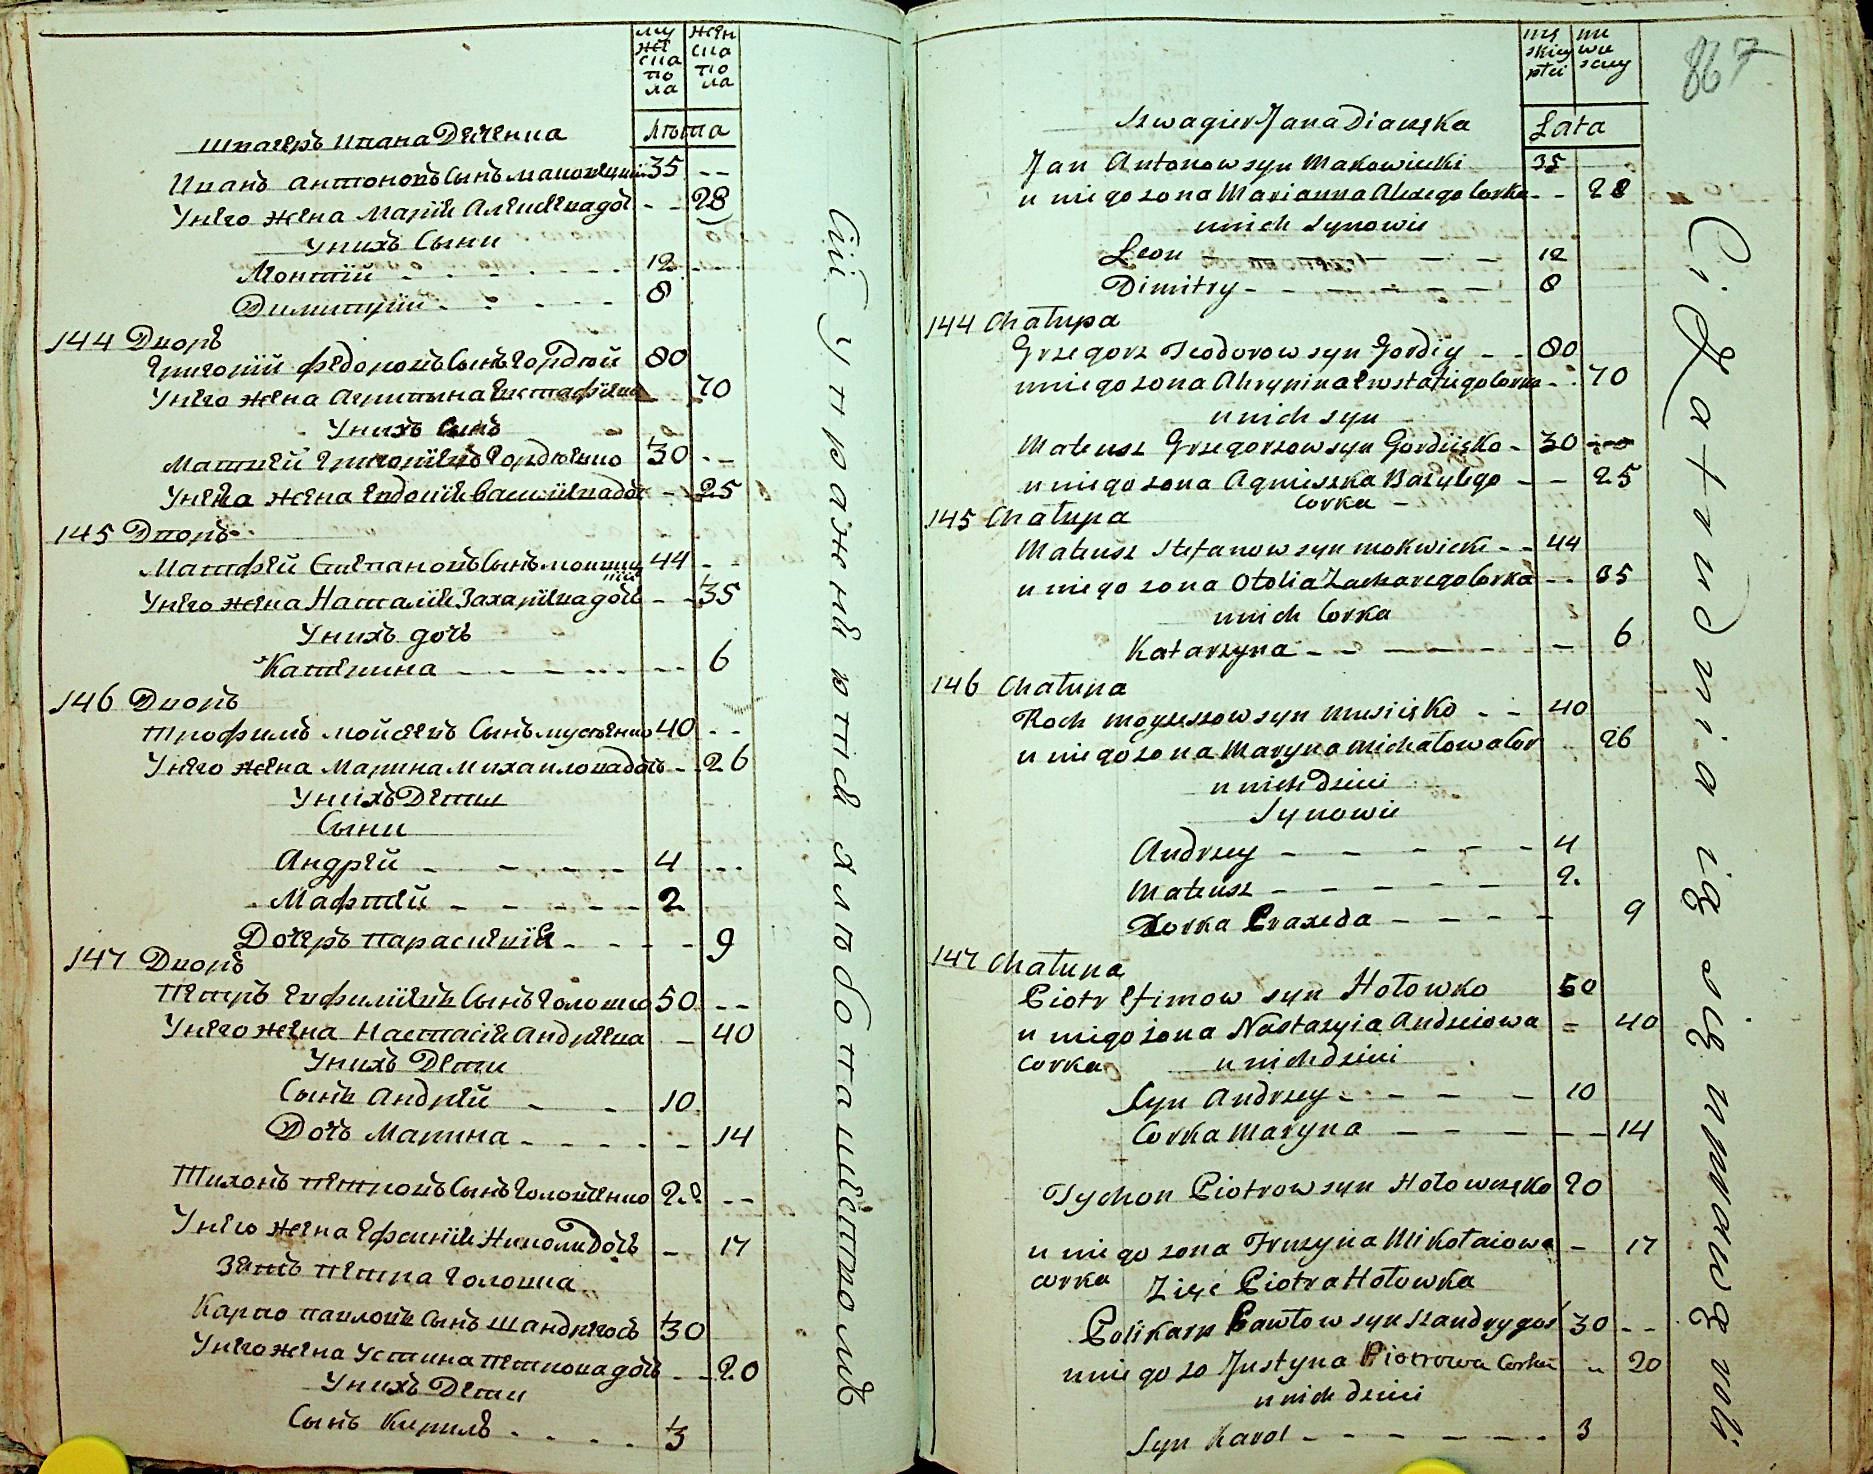 му
же
ска
по
ла
жен
ска
по
ла
Шваgеръ Ивана Дяченка
Лѣта
Иванъ Антоновъ Сынъ 35 --
Унего жена Марія - - 28
Унихъ Сыни
Леонтій - - - - 12 --
Димитрій - - - - 8
144 Дворъ
Григорій Федоровъ Сынъ Гордѣй 80
Унего жена Агрипина 70
Унихъ Сынъ
Матвей Григоріевъ Гордѣенко 30 --
Унего жена Евдокія Василіева доч - - 25
145 Дворъ
Матфей Степановъ Сынъ 44 - -
Унего жена Наталія Захаріева дочь - - 35
Унихъ дочь
Катерина - - - - - - 6
146 Дворъ
Трофимъ Мойсеевъ Сынъ Мусѣенко 40 --
Унего жена Марина Михайлова дочь - - 26
Унихъ Дети
Сыни
Андрей - - - - 4 --
Мафтей - - - - - 2
Дочеръ Параскевія - - - - 9
147 Дворъ
Петръ Евфиміевъ Сынъ Головко 50 --
Унего жена Настасія Андреева - 40
Унихъ Дети
Сынъ Андрей - - 10
Дочь Марина - - - - - 14
Тихонъ Петровъ Сынъ Головченко 20 --
Унего жена Ефросинія Никола Дочь - 17
Зять Петра Головка
Карпо Павловъ Сынъ Шандригосъ 30
Унего жена Устина Петрова дочь - - 20
Унихъ Дети
Сынъ Кирилъ - - - - 3
Сіи упражняются хлѣбопашествомъ
867
męskiey płci
niewiescey
Szwagier Jana Diaczęka
Łata
Jan Antonow syn Makowiecki 35
u niego zona Marianna Alexego Corka - - 28
u nich synowie
Leon - - - - - 12
Dimitry - - - - - - - 8
144 Chałupa
Grzegorz Teodorow syn Gordiy - - 80
u niego zona Ahrypina Ewstafiego Corka - - 70
u nich syn
Mateusz Grzegorzow syn Gordiięko - 30 --
u niego zona Agnieszka Bazylego - - 25
Corka -
145 Chałupa
Mateusz Stefanow syn Mokwicki - - 44
u niego zona Otolia Zacharego Corka - - 35
u nich Corka
Katarzyna - - - - - - 6
146 Chałupa
Roch Moyzeszow syn Musięko - - 40
u niego zona Maryna Michałowa Cor - 26
u nich Dzieci
Synowie
Andrzey - - - - - 4
Mateusz - - - - - 2.
Corka Praxeda - - - - 9
147 Chałupa
Piotr Efimow syn Hołowko 50
u niego żona Nastazyia Andzeiowa = 40
Corka u nich dzieci
Syn Andrzey - - - - 10
Corka Maryna - - - - - - 14
Tychon Piotrow syn Hołowczęko 20
u niego zona Fruzyna Mikołaiowa - 17
corka Zięć Piotra Hołowka
Polikarp Pawłow syn Szandrygoś 30 --
u niego zo Justyna Piotrowa Corka - 20
u nich dzieci
Syn Karol - - - - - - - 3
Ci Zatrudnia ią się uprawą roli